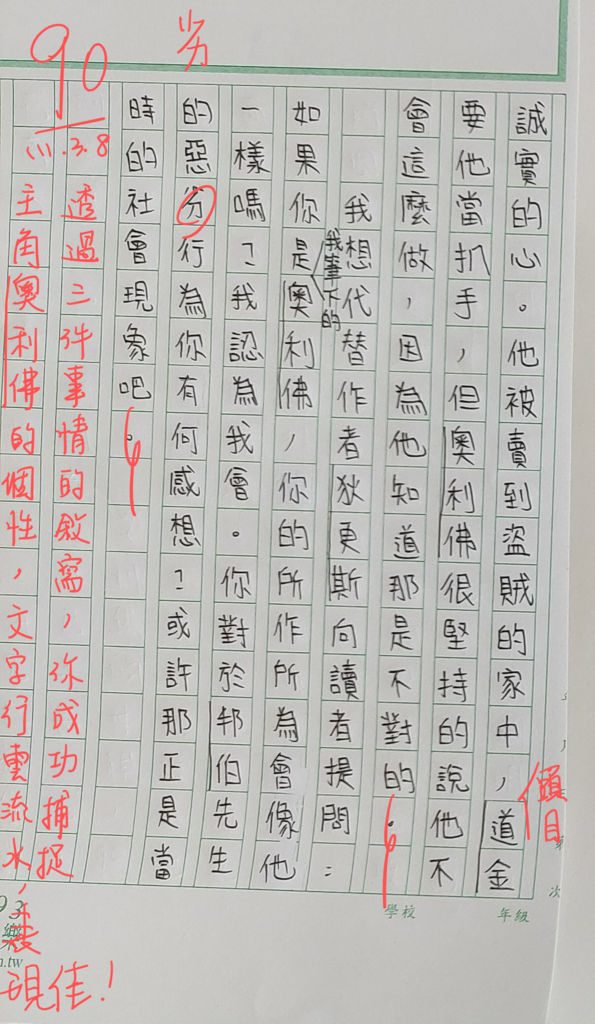 誠實的心。他被賣到盜賊的家中,道金
頭目
要他當扒手,但奧利佛很堅持的說他不
會這麼做,因為他知道那是不對的。
我想代替作者狄更斯向讀者提問:
如果你是奧利佛,你的所作所為會像他
我筆下的
一樣嗎?我認為我會。你對於邦伯先生
的惡劣行為你有何感想?或許那正是當
時的社會現象吧。
劣
90
111.3.8
透過三件事情的敘寫,你成功捕捉
主角奧利佛的個性,文字行雲流水,表
現佳!
學校
年級
次
93
樂
n.tw